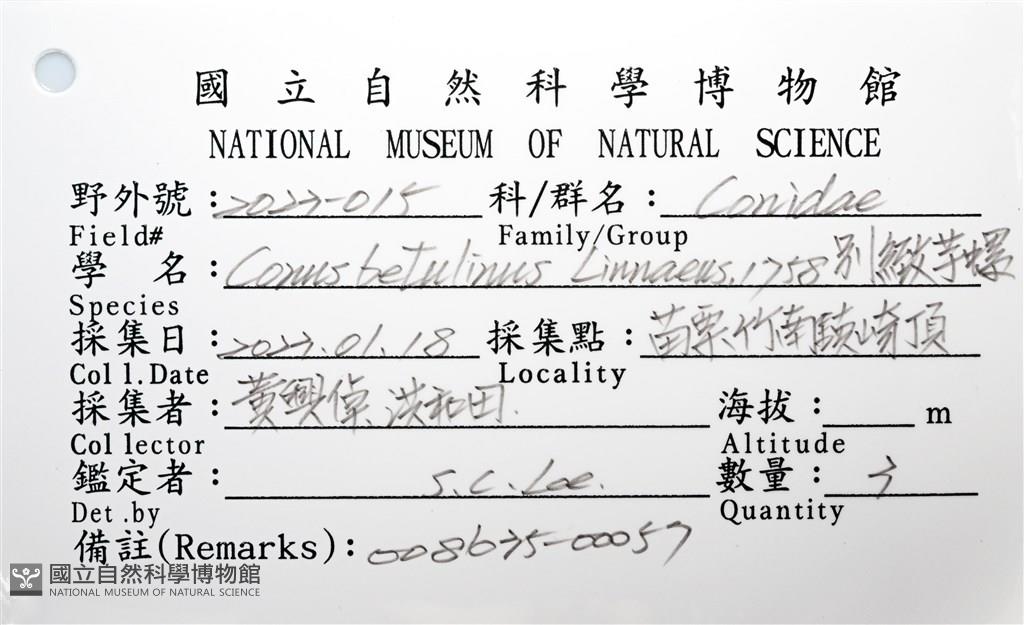 國立自然科學博物館
NATIONAL MUSEUM OF NATURAL SCIENCE
野外號：2022-015 科/群名： Conidae
Field# Family/Group
學 名：Conus betulinus Linnaeus, 1758 別緻芋螺
Species
採集日：2022.01.18 採集點：苗栗竹南鎮崎頂
Coll.Date Locality
採集者：黃興倬、洪和田 海拔： m
Collector Altitude
鑑定者： S.C.Lee. 數量： 3
Det.by Quantity
備註(Remarks)：008675-00057
國立自然科學博物館
NATIONAL MUSEUM OF NATURAL SCIENCE